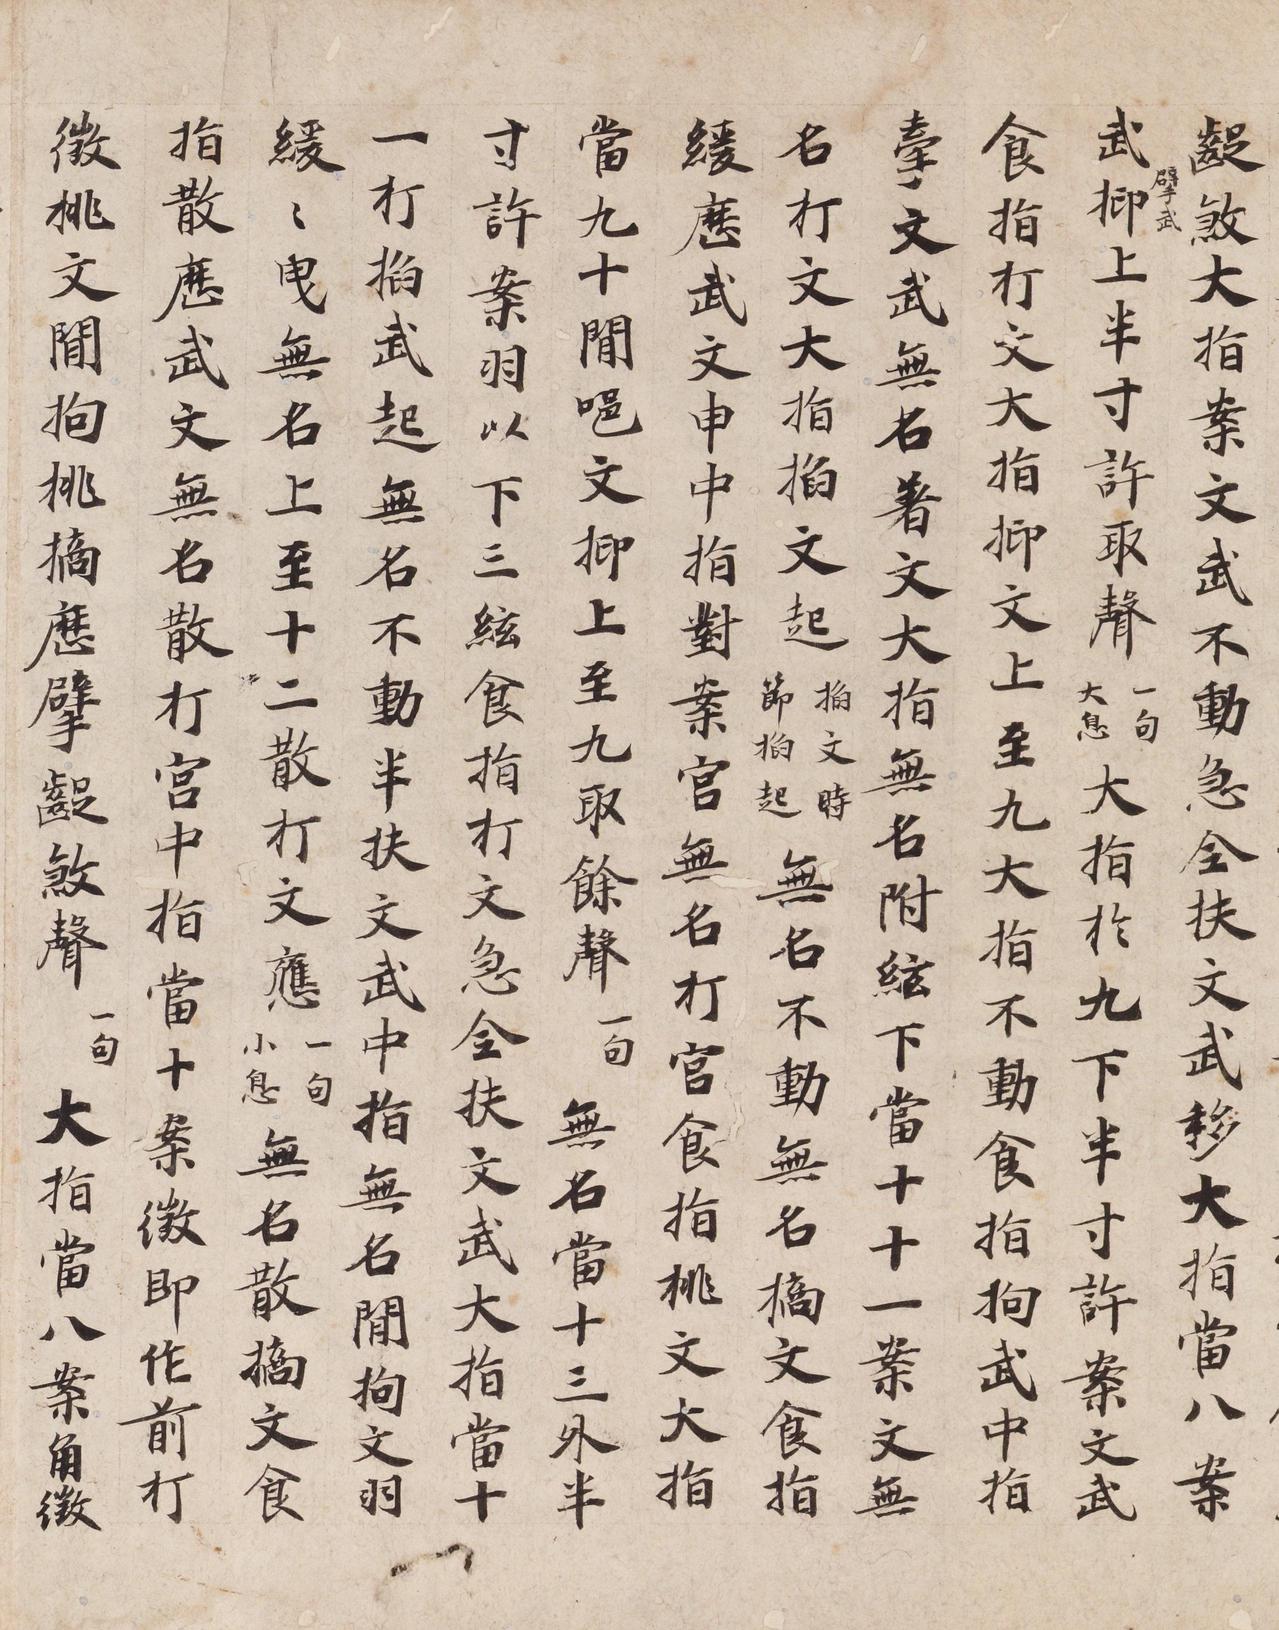 齪煞大指案文武不動急全扶文武移大指當八案
武擘武抑上半寸許取聲一句大息大指於九下半寸許案文武
食指打文大指抑文上至九大指不動食指拘武中指
牽文武無名著文大指無名附絃下當十十一案文無
名打文大指掐文起掐文時節掐起無名不動無名摘文食指
緩歷武文申中指對案宮無名打宮食指挑文大指
當九十間吧文抑上至九取餘聲一句無名當十三外半
寸許案羽以下三絃食指打文急全扶文武大指當十
一打掐武起無名不動半扶文武中指無名間拘文羽
緩〻曳無名上至十二散打文應一句小息無名散摘文食
指散歷武文無名散打宮中指當十案徵即作前打
徵挑文間拘挑摘歷擘齪煞聲一句大指當八案角徵